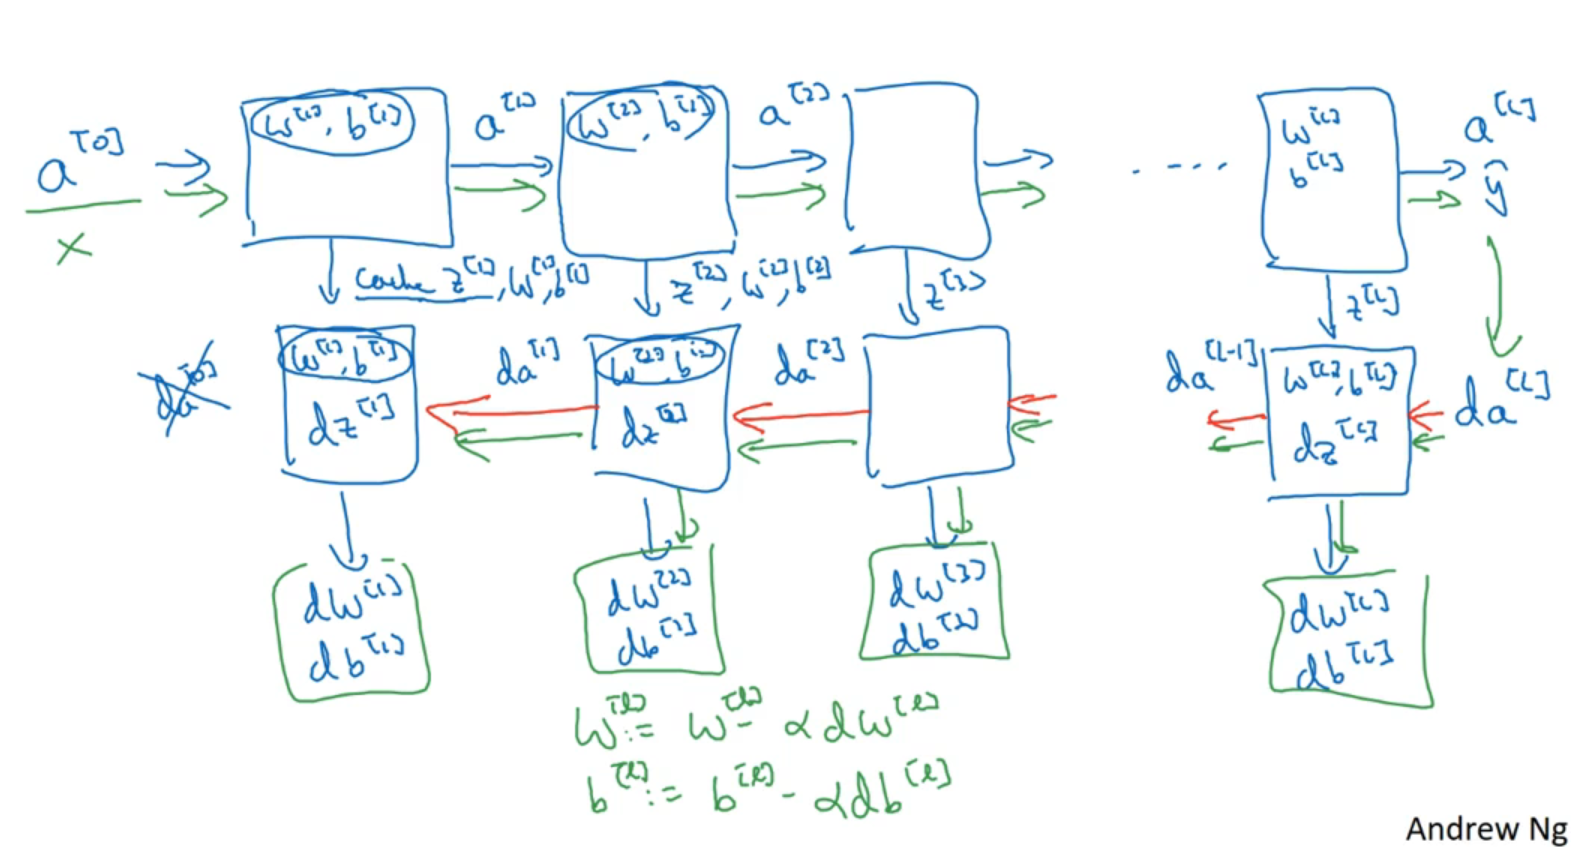 a^[0]
x
w^[1], b^[1]
a^[1]
w^[2], b^[1]
a^[2]
....
w^[L]
b^[L]
a^[L]
ŷ
cache z^[1], w^[1], b^[1]
z^[2], w^[2], b^[2]
z^[3]
z^[L]
da^[0]
w^[1], b^[1]
dz^[1]
da^[1]
w^[2], b^[2]
dz^[2]
da^[2]
da^[L-1]
w^[L], b^[L]
dz^[L]
da^[L]
dw^[1]
db^[1]
dw^[2]
db^[2]
dw^[3]
db^[3]
dw^[L]
db^[L]
w^[l] := w^[l] - αdw^[l]
b^[l] := b^[l] - αdb^[l]
Andrew Ng